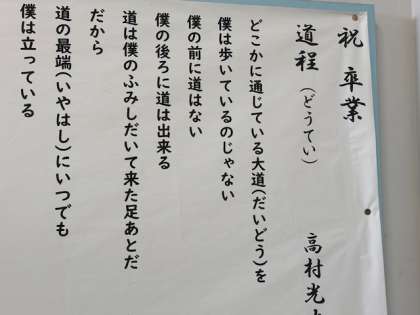 祝 卒業
道程（どうてい）
高村光
どこかに通じている大道（だいどう）を
僕は歩いているのじゃない
僕の前に道はない
僕の後ろに道は出来る
道は僕のふみしだいて来た足あとだ
だから
道の最端（いやはし）にいつでも
僕は立っている